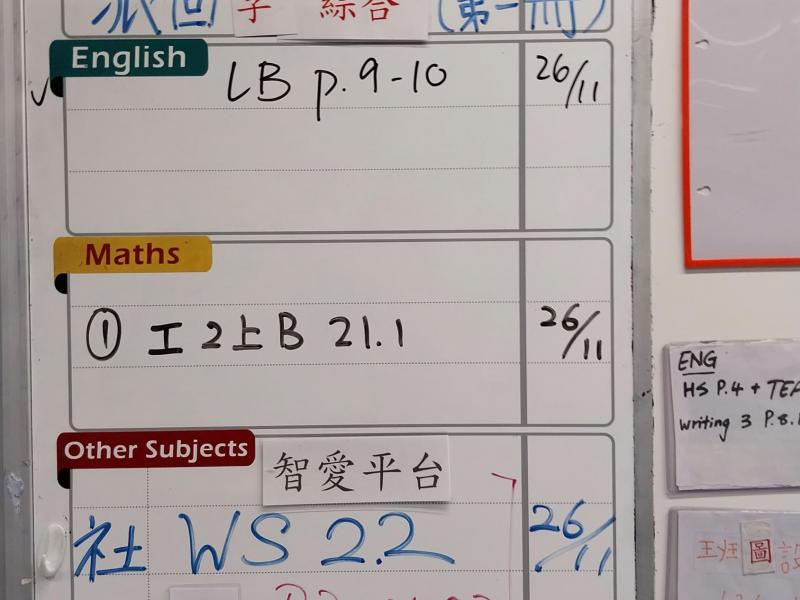 派回 字 綜合 (第一冊)
English
LB p.9-10 26/11
Maths
① 工2上B 21.1 26/11
ENG
HS P.4 + TEA
writing 3 P.8.
Other Subjects 智愛平台
社 WS 2.2 26/11
圖